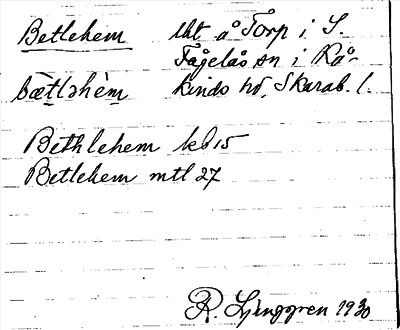 Betlehem lht å Torp i S.
Fågelås sn i Kå-
bætləhèm kinds hd, Skarab. l.
Bethlehem kb 15
Betlehem mtl 27
R. Ljunggren 1930